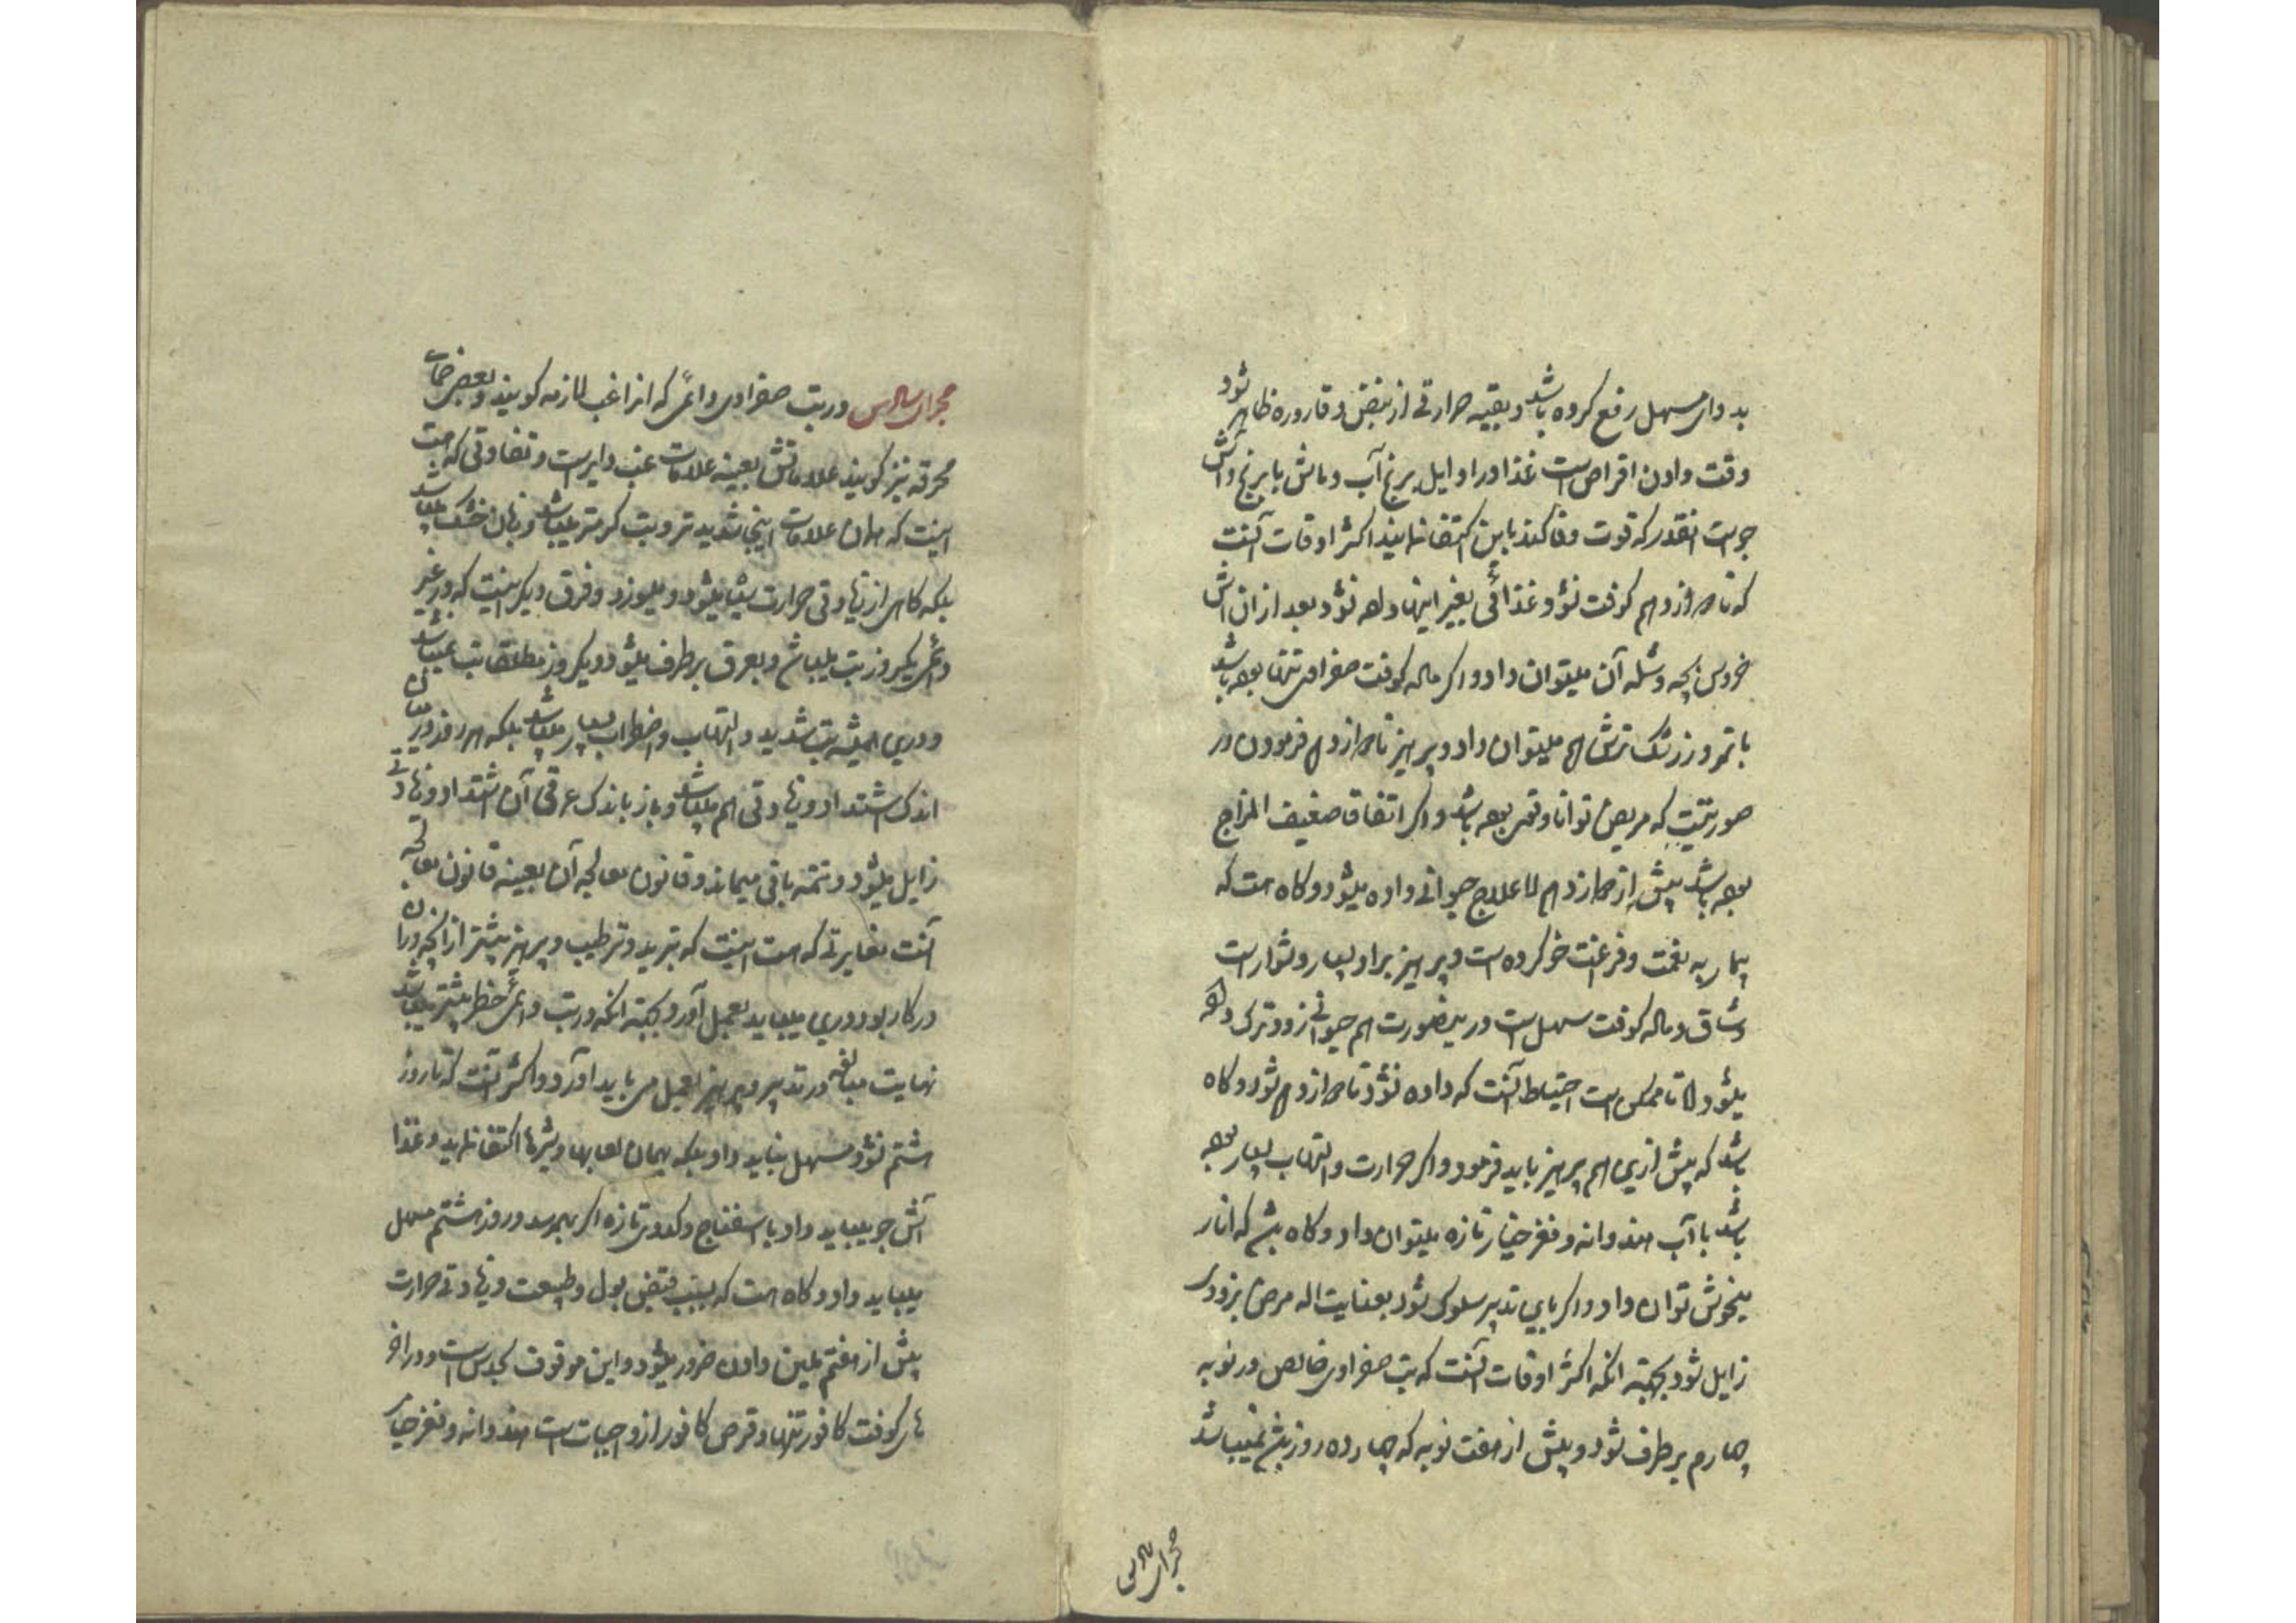 بدوای مسهل رفع کرده باشد و بقیه حرارتی از نبض و قاروره ظاهر شود
وقت دادن اقراص است غذا در اوایل برنج آب و ماش با برنج و آش
جو است انقدر که قوت وفا کند باین اکتفا نمایند اکثر اوقات آنست
که تا دوازدهم گوفت نشود غذائی بغیر اینها داده نشود بعد از ان آش
خروس بچه و شله آن میتوان داد و اگر ماده گوفت صفراوی تنها بوده باشد
با تمر و زرشک ترش هم میتوان داد و پرهیز تا دوازدهم فرمودن در
صورتیست که مریض توانا و قوی بوده باشد و اگر اتفاقا ضعیف المزاج
بوده باشد پیش از دوازدهم لاعلاج حیوانی داده میشود و گاه هست که
بیمار به نعمت و فرغنت خو کرده است و پرهیز بر او بسیار دشوار است
و شاق و ماده گوفت سهل است درینصورت هم حیوانی زودترک داده
میشود اما تا ممکن است احتیاط آنست که داده نشود تا دوازدهم شود و گاه
باشد که پیش ازین هم پرهیز باید فرمود و اگر حرارت و التهاب بسیار بوده
باشد با آب هندوانه و مغز خیار تازه میتوان داد و گاه باشد که انار
میخوش توان داد و اگر باین تدبیر سلوک شود بعنایت اله مرض بزودی
زایل شود بجهته انکه اکثر اوقات آنست که تب صفراوی خالص در نوبه
چهارم برطرف شود و بیش از هفت نوبه که چهارده روز باشد نمیباشد
مجرای سادس
مجرای سادس در تب صفراوی دائمی که انرا غب لازمه گویند و بعضی حمای
محرقه نیز گویند علاماتش بعینه علامات غب دایر است و تفاوتی که هست
اینست که همان علامات اینجا شدیدتر و تب گرمتر میباشد و زبان خشک میباشد
بلکه گاهی از زیادتی حرارت سیاه میشود و میلرزد و فرق دیگر اینست که در غیر
دائمی یکروز تب میباشد و بعرق برطرف میشود و یکروز مطلقا تب نمیباشد
و درین همیشه تب شدید و التهاب و اضطراب بسیار میباشد بلکه هر روز در میان
اندک اشتداد و زیادتی هم میباشد و باز باندک عرقی آن اشتداد و زیادتی
زایل میشود و تتمه باقی میماند و قانون معالجه آن بعینه قانون معالجه
آنست مغایرتی که هست اینست که تبرید و ترطیب و پرهیز بیشتر از انچه در ان
در کار بود درین میباید بعمل آورد بجهته انکه در تب دائمی خطر بیشتر میباشد
نهایت مبالغه در تدبیر و پرهیز بعمل می باید آورد و اکثر آنست که تا روز
هشتم نشود مسهل نباید داد بلکه بهمان لعابها و شیرها اکتفا نماید و غذا
آش جو میباید داد با اسفناج و کدوی تازه اگر بهم رسد و روز هشتم مسهل
میباید داد و گاه هست که بسبب قبض بول و طبیعت و زیادتی حرارت
پیش از هفتم ملین دادن ضرور میشود و این موقوف بحدس است و در اخر
های گوفت کافور تنها و قرص کافور از واجبات است هندوانه و مغز خیار